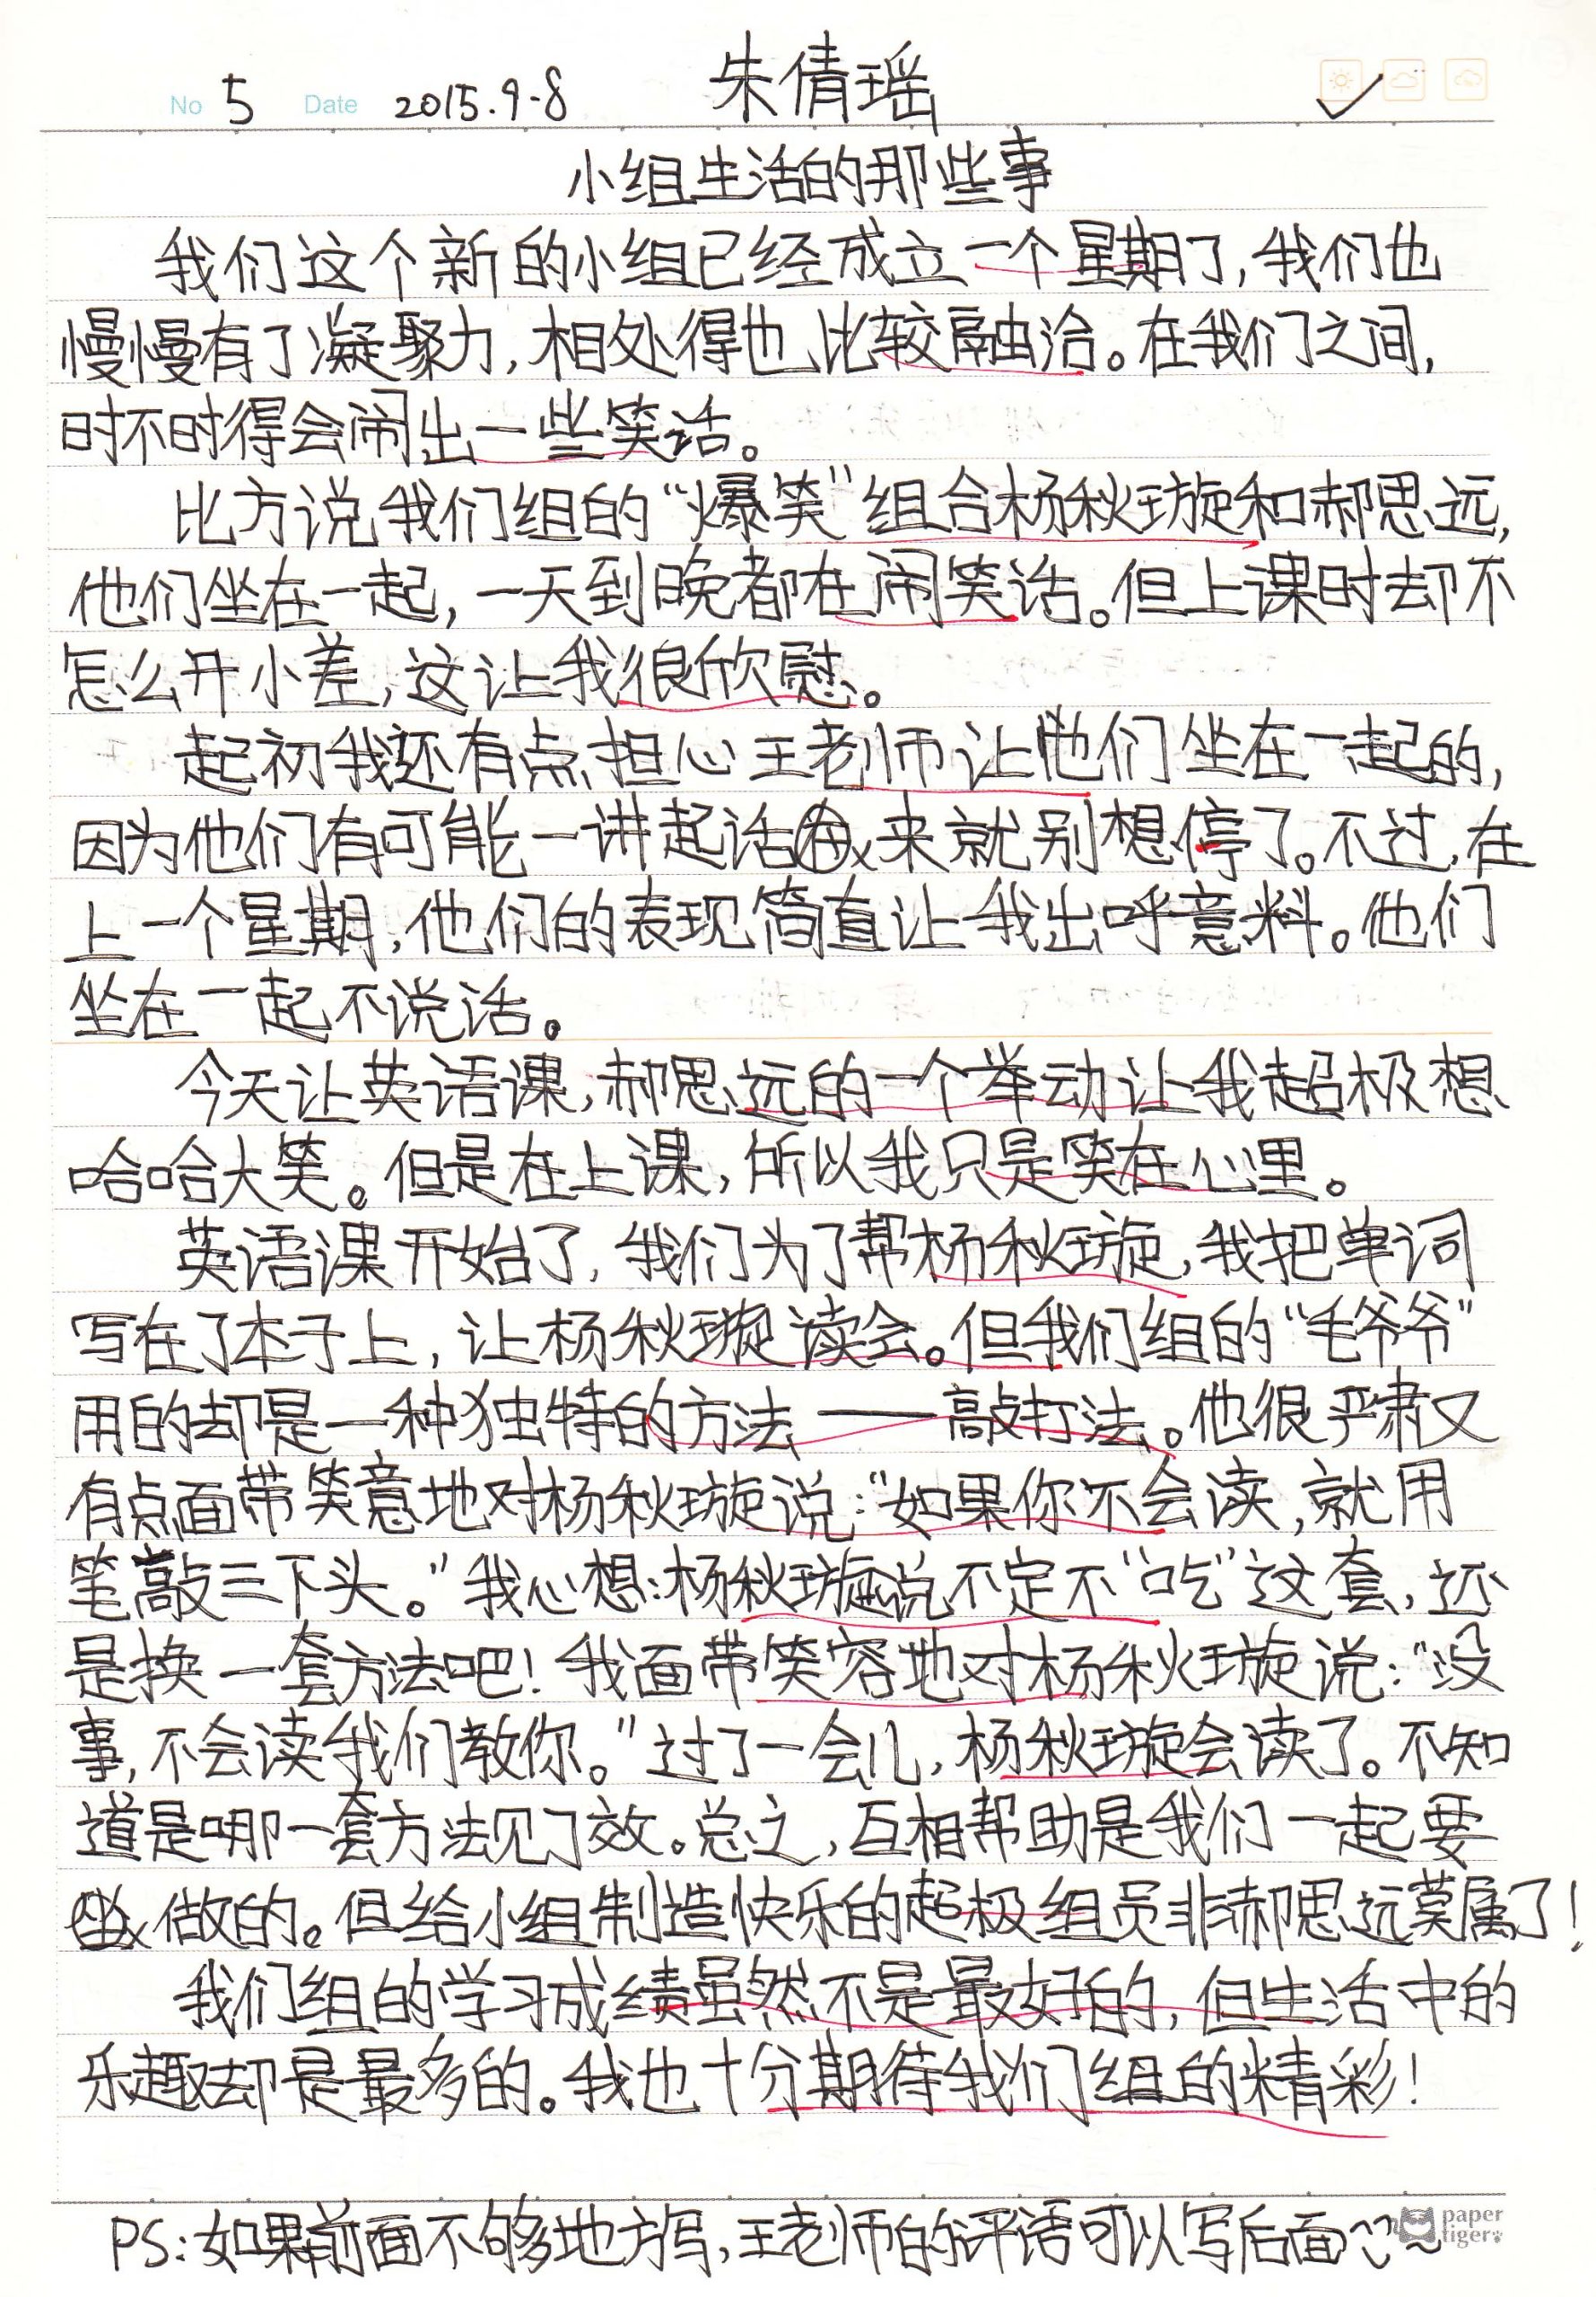 No 5 Date 2015.9-8 朱倩瑶
小组生活的那些事
我们这个新的小组已经成立一个星期了,我们也
慢慢有了凝聚力,相处得也比较融洽。在我们之间,
时不时得会闹出一些笑话。
比方说我们组的“爆笑”组合杨秋璇和郝思远,
他们坐在一起,一天到晚都在闹笑话。但上课时却不
怎么开小差,这让我很欣慰。
起初我还有点担心王老师让他们坐在一起的,
因为他们有可能一讲起话来就别想停了。不过,在
上一个星期,他们的表现简直让我出呼意料。他们
坐在一起不说话。
今天让英语课,郝思远的一个举动让我超极想
哈哈大笑。但是在上课,所以我只是笑在心里。
英语课开始了,我们为了帮杨秋璇,我把单词
写在了本子上,让杨秋璇读会。但我们组的“毛爷爷”
用的却是一种独特的方法——敲打法。他很严肃又
有点面带笑意地对杨秋璇说:“如果你不会读,就用
笔敲三下头。”我心想:杨秋璇说不定不“吃”这套,还
是换一套方法吧!我面带笑容地对杨秋璇说:“没
事,不会读我们教你。”过了一会儿,杨秋璇会读了。不知
道是哪一套方法见了效。总之,互相帮助是我们一起要
做的。但给小组制造快乐的超极组员非郝思远莫属了!
我们组的学习成绩虽然不是最好的,但生活中的
乐趣却是最多的。我也十分期待我们组的精彩!
PS:如果前面不够地方写,王老师的评语可以写后面~
paper
tiger